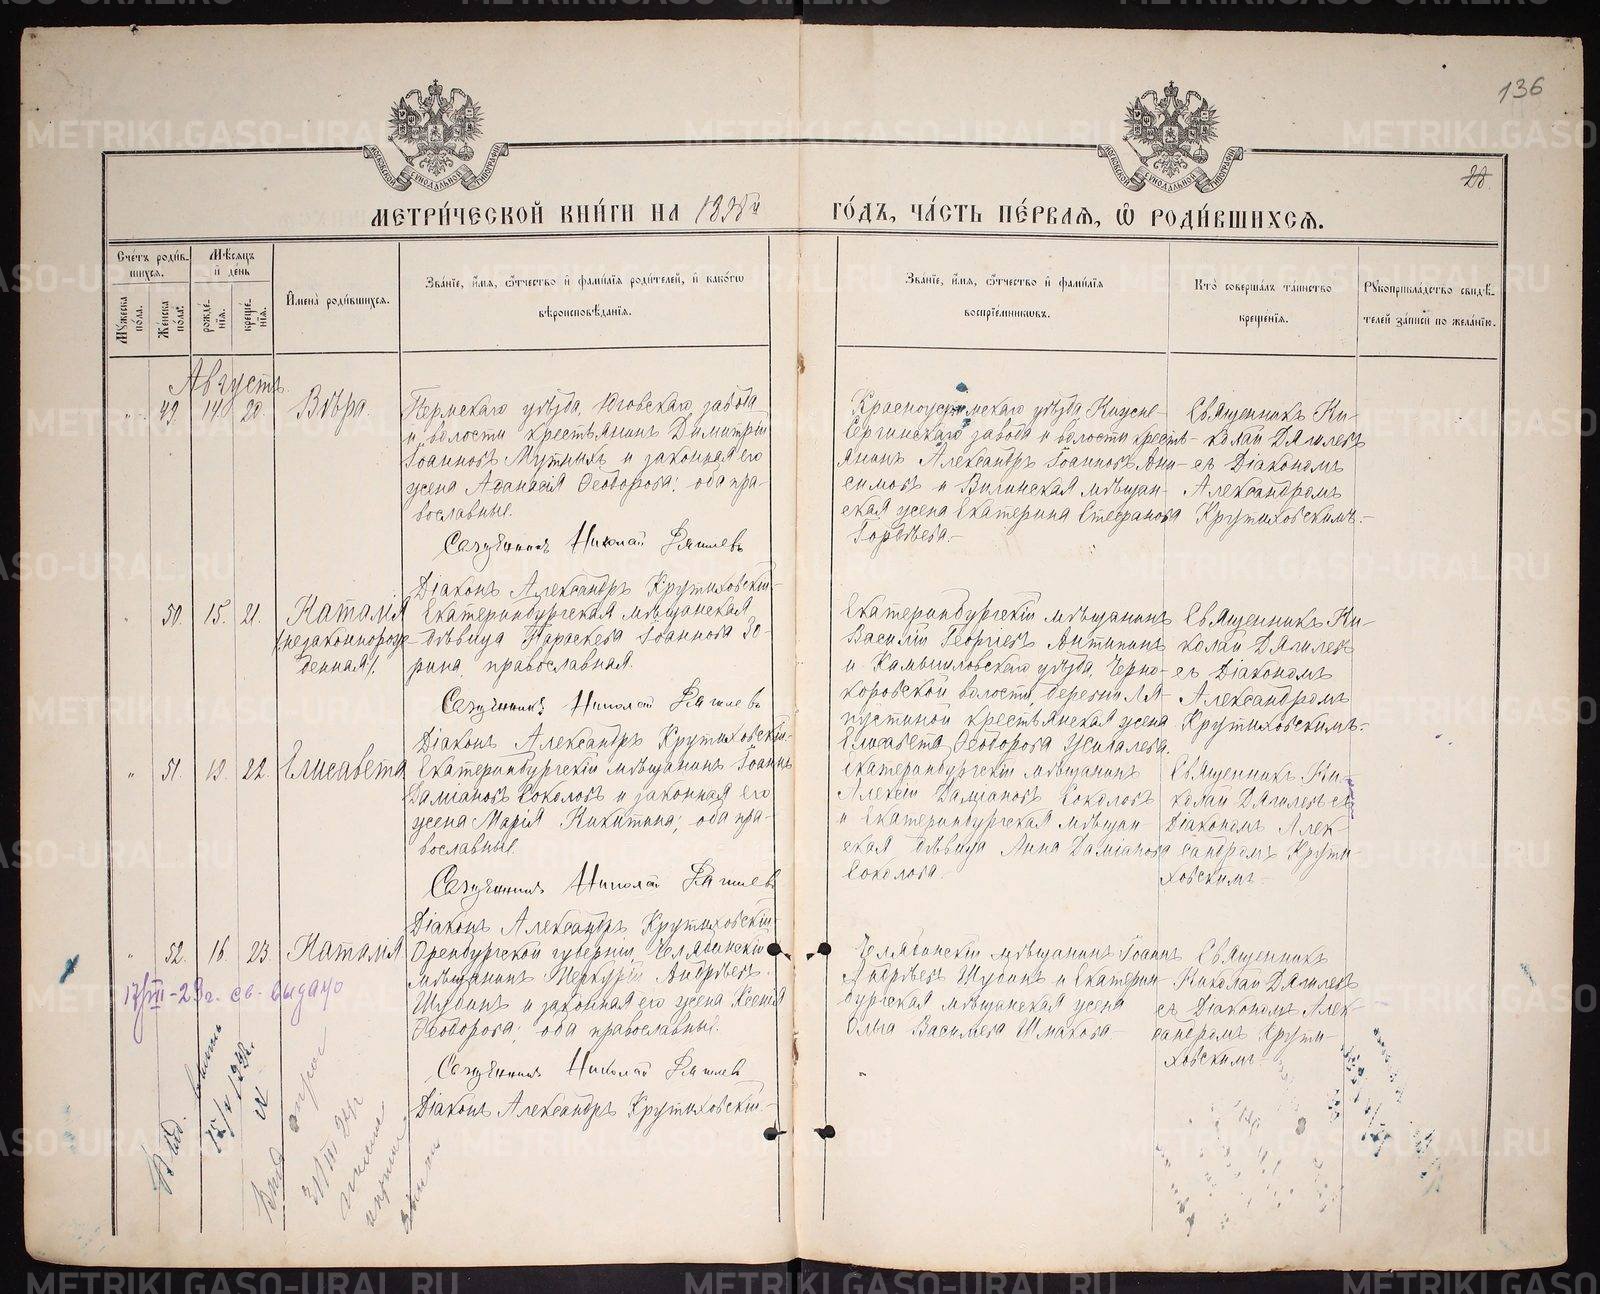 136
28.
МЕТРИ́ЧЕСКОЙ КНИ́ГИ НА 1898й ГО́ДЪ, ЧА́СТЬ ПЕ́РВАѦ, Ѡ҆ РОДИ́ВШИХСѦ.
Сче́тъ роди́в-
шихсѧ.
Мѣ́сѧцъ
и҆ де́нь
Мꙋ́жеска
по́ла.
Же́нска
по́ла.
рожде́-
нїѧ.
креще́-
нїѧ.
И҆мена̀ роди́вшихсѧ.
Зва́нїе, и҆́мѧ, ѻ҆́тчество и҆ фами́лїѧ роди́телей, и҆ како́гѡ
вѣроисповѣ́данїѧ.
Зва́нїе, и҆́мѧ, ѻ҆́тчество и҆ фами́лїѧ
воспрїе́мникѡвъ.
Кто̀ соверша́лъ та́инство
креще́нїѧ.
Рꙋкоприкла́дство свидѣ́-
телей за́писи по жела́нїю.
Августъ.
" 49 14. 20. Вѣра.
Пермскаго уѣзда, Юговскаго завода
и волости крестьянинъ Димитрій
Іоанновъ Мутныхъ и законная его
жена Аѳанасія Ѳеодорова; оба пра-
вославные.
Священникъ Николай Дягилевъ
Діаконъ Александръ Крутиховскій.
Красноуфимскаго уѣзда Нижне-
Сергинскаго завода и волости кресть-
янинъ Александръ Іоанновъ Ани-
симовъ и Виленская мѣщан-
ская жена Екатерина Стефанова
Священникъ Ни-
колай Дягилевъ
съ Діакономъ
Александромъ
Крутиховскимъ.
" 50. 15. 21. Наталія
(незаконнорож-
денная).
Екатеринбургская мѣщанская
дѣвица Параскева Іоаннова Зо-
рина, православная.
Священникъ Николай Дягилевъ
Діаконъ Александръ Крутиховскій.
Екатеринбургскій мѣщанинъ
Василій Георгіевъ Антипинъ
и Камышловскаго уѣзда, Черно-
коровской волости, деревни Ля-
пустиной крестьянская жена
Елисавета Ѳеодорова
Священникъ Ни-
колай Дягилевъ
съ Діакономъ
Александромъ
Крутиховскимъ.
" 51. 19. 22. Елисавета
Екатеринбургскій мѣщанинъ Іоаннъ
Даміановъ Соколовъ и законная его
жена Марія Никитина; оба пра-
вославные.
Священникъ Николай Дягилевъ
Діаконъ Александръ Крутиховскій.
Екатеринбургскій мѣщанинъ
Алексій Даміановъ Соколовъ
и Екатеринбургская мѣщан-
ская дѣвица Анна Даміанова
Соколова.
Священникъ Ни-
колай Дягилевъ съ
Діакономъ Алек-
сандромъ Крути-
ховскимъ.
" 52. 16. 23. Наталія
Оренбургской губерніи Челябинскій
мѣщанинъ Меркурій Андреевъ
Шубинъ и законная его жена Ксенія
Ѳеодорова; оба православные.
Священникъ Николай Дягилевъ
Діаконъ Александръ Крутиховскій.
Челябинскій мѣщанинъ Іоаннъ
Андреевъ Шубинъ и Екатерин-
бургская мѣщанская жена
Ольга Васильева
Священникъ
Николай Дягилевъ
съ Діакономъ Алек-
сандромъ Крути-
ховскимъ.
17/III-29г. св. выдано